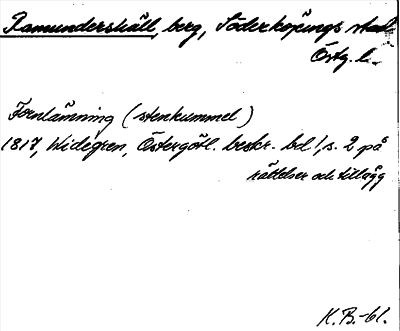 Ramundershäll, berg, Söderköpings stad
Östg. l.
Fornlämning (stenkummel)
1817, Widegren, Östergötl. beskr. bd 1, s. 2 på
rättelser och tillägg
K.B.-61.